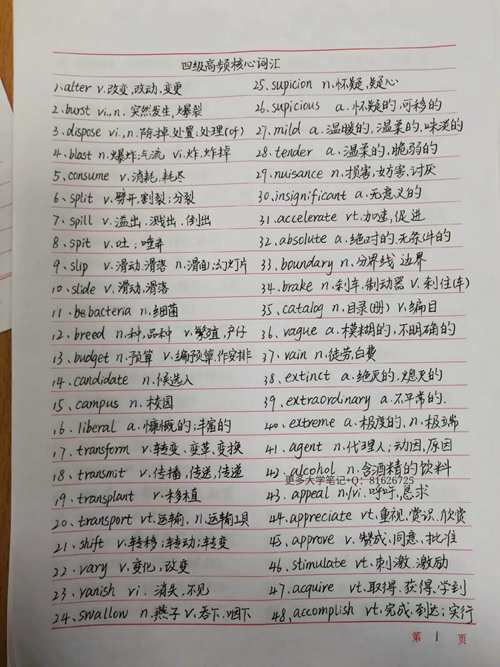 四级高频核心词汇
1、alter v.改变,改动,变更
2、burst vi.,n.突然发生,爆裂
3、dispose vi.,n.除掉,处置;处理(of)
4、blast n.爆炸;气流 vi.炸,炸掉
5、consume v.消耗,耗尽
6、split v.劈开,割裂;分裂
7、spill v.溢出,溅出,倒出
8、spit v.吐;唾弃
9、slip v.滑动,滑落 n.滑曲;幻灯片
10、slide v.滑动,滑落
11、bebacteria n.细菌
12、breed n.种,品种 v.繁殖,产仔
13、budget n.预算 v.编预算,作安排
14、candidate n.候选人
15、campus n.校园
16、liberal a.慷慨的;丰富的
17、transform v.转变、变革,变换
18、transmit v.传播,传送,传递
19、transplant v.移植
20、transport vt.运输,n.运输工具
21、shift v.转移;转动;转变
22、vary v.变化,改变
23、vanish vi.消失,不见
24、swallow n.燕子 v.吞下,咽下
25、supicion n.怀疑,疑心
26、supicious a.怀疑的,可移的
27、mild a.温暖的,温柔的,味淡的
28、tender a.温柔的,脆弱的
29、nuisance n.损害,妨害,讨厌
30、insignificant a.无意义的
31、accelerate vt.加速,促进
32、absolute a.绝对的,无条件的
33、boundary n.分界线 边界
34、brake n.刹车,制动器 v.刹住(车)
35、catalog n.目录(册) v.编目
36、vague a.模糊的,不明确的
37、vain n.徒劳,白费
38、extinct a.绝灭的,熄灭的
39、extraordinary a.不平常的.
40、extreme a.极度的,n.极端
41、agent n.代理人;动因,原因
42、alcohol n.含酒精的饮料
更多大学笔记+Q: 81626725
43、appeal n/vi.呼吁,恳求
44、appreciate vt.重视,赏识,欣赏
45、approve v.赞成,同意,批准
46、stimulate vt.刺激,激励
47、acquire vt.取得,获得,学到
48、accomplish vt.完成,到达;实行
第 1 页